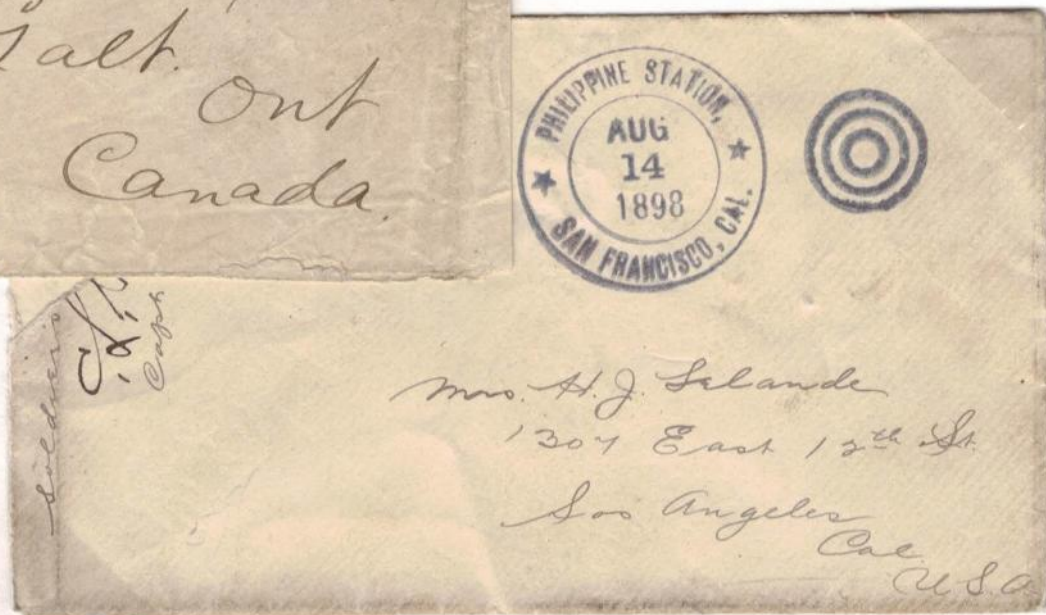 Galt.
Ont
Canada.
PHILIPPINE STATION,
AUG
14
1898
SAN FRANCISCO, CAL.
Soldier's
Capt
Mrs. H. J. Lelande
1307 East 12th St.
Los Angeles
Cal
U.S.A